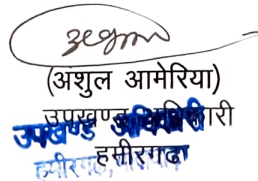 (अंशुल आमेरिया)
उपखण्ड अधिकारी
हमीरगढ़
उपखण्ड अधिकारी
हमीरगढ़,